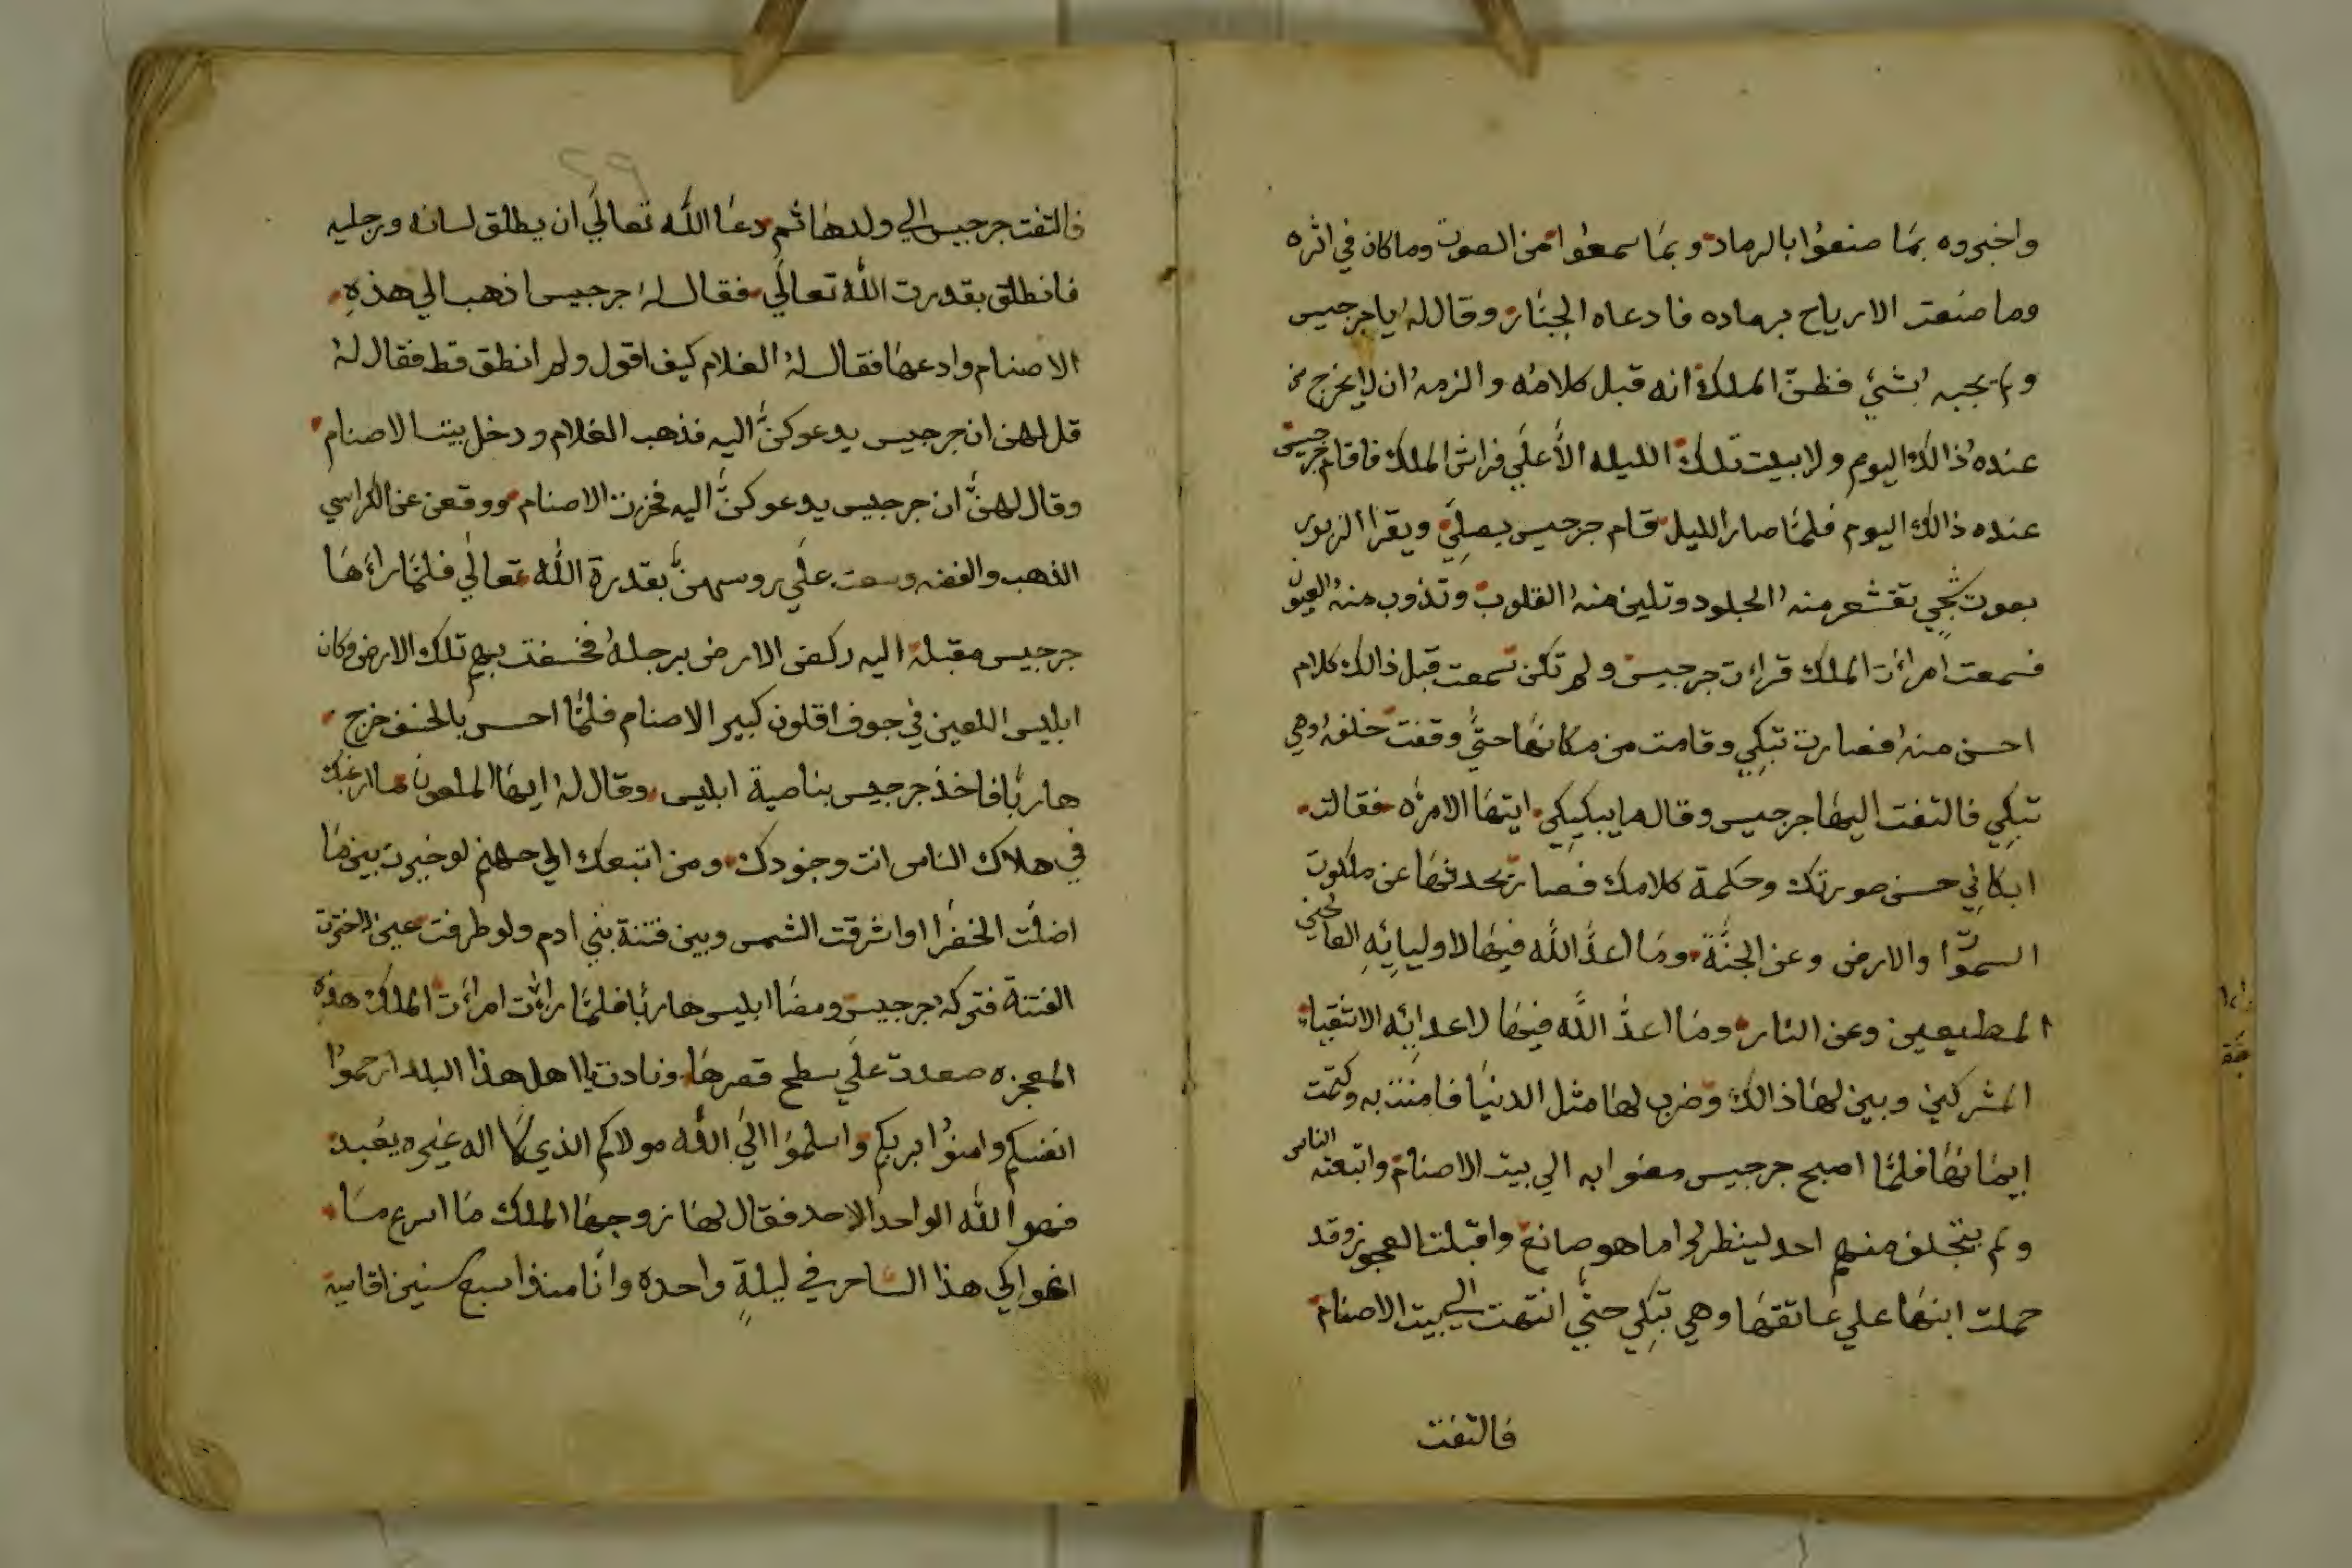 واخبروه بمَا صنعوُا بالرماد وبمَا سمعوُا من الصوت وماكان في اثره
وما صنعت الارياح برماده فادعاه الجبَّار وقال لهُ ياجرجيس
ولم يجبهُ بشيءٍ فظنَّ الملك انه قبل كلامُه والزمهُ ان لايخرج من
عنده ذالك اليوم ولا يبيت تلك الليله الاَّ علي فراش الملك فاقام جرجيس
عنده ذالك اليوم فلمَّا صار الليل قام جرجيس يصلّي ويقرا الزبور
بصوت شجيٍ تقشعر منهُ الجلود وتلين منهُ القلوب وتذوب منهُ العيون
فسمعت امرأت الملك قراءت جرجيس ولم تكن تسمعت قبل ذالك كلام
احسن منهُ فصارت تبكي وقامت من مكانهَا حتَّي وقفت خلفهُ وهي
تبكِي فالتفت اليهَا جرجيس وقال مايبكيكي ايتهَا الامرٔه فقالت
ابكاني حسن صورتك وحكمة كلامك فصار يحدثهَا عن ملكوت
السموَّا والارض وعن الجنَّة ومَا اعدَّ اللَّه فيهَا لاوليايِهِ الصالحين
المطيعين وعن النار ومَا اعدَّ اللَّه فيهَا لاعدائِه الاشقياء
المشركين وبين لهَا ذالك وضرب لهَا مثل الدنيَا فامنت به وكتمت
ايمانهَا فلمَّا اصبح جرجيس مضوا به الي بيت الاصنام واتبعته الناس
ولم يتخلف منهم احد لينظرُوا ما هو صانع واقبلت العجوز وقد
حملت ابنهَا علي عَاتقهَا وهي تبكِي حتَّي انتهت الي بيت الاصنام
فالتفت
فالتفت جرجيس الي ولدهَا ثم دعَا اللَّه تعالَي ان يطلق لسانه ورجليه
فانطلق بقدرت اللَّه تعالَي فقال لهُ جرجيس اذهب الي هذهِ
الاصنام وادعهَا فقال لهُ الغلام كيف اقول ولم انطق قط فقال لهُ
قل لهن ان جرجيس يدعوكنَّ اليه فذهب الغلام ودخل بيت الاصنام
وقال لهنَّ ان جرجيس يدعوكنَّ اليه فخرت الاصنام ووقعن عن الكراسي
الذهب والفضه وسعت علَي روسهنَّ بقدرة اللَّه تعالَي فلمَّا راٰهَا
جرجيس مقبلة اليه ركض الارض برجلهُ فخسفت بهم تلك الارض وكان
ابليس اللعين في جوف اقلون كبير الاصنام فلمَّا احس بالخسف خرج
هاربًا فاخذ جرجيس بناصية ابليس وقال لهُ ايهَا الملعون ما ارغبك
في هلاك الناس انت وجنودك ومن اتبعك الي جهنم لو خيرت بين مَا
اضلَّت الخضرا او اشرقت الشمس وبين فتنة بني ادم ولو طرفت عين لاخترت
الفتنة فتركهُ جرجيس ومضَا ابليس هاربًا فلمَّا رأت امرأت الملك هذهِ
المعجزه صعدت علَي سطح قصرهَا ونادت يا اهل هذا البلد ارحموُا
انفسكم وامنوُا بربكم واسلموُا الَي اللَّه مولاكم الذي لَا اله غيره يعُبد
فهو اللَّه الواحد الاحد فقال لهَا زوجهَا الملك مَا اسرع مَا
اغواكي هذا الساحر في ليلةٍ واحده وانَا منذ سبع سنين اقاسيهِ